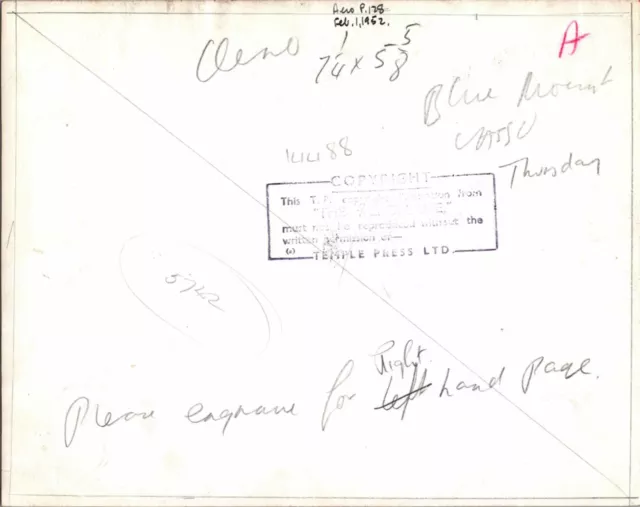 Aero P.128
Feb. 1, 1952.
A
7 1/4 x 5 5/8
Blue Mount
Thursday
14488
COPYRIGHT
This T.P. from
must not be reproduced without the
written permission of—
TEMPLE PRESS LTD.
Please engrave for left right hand page.